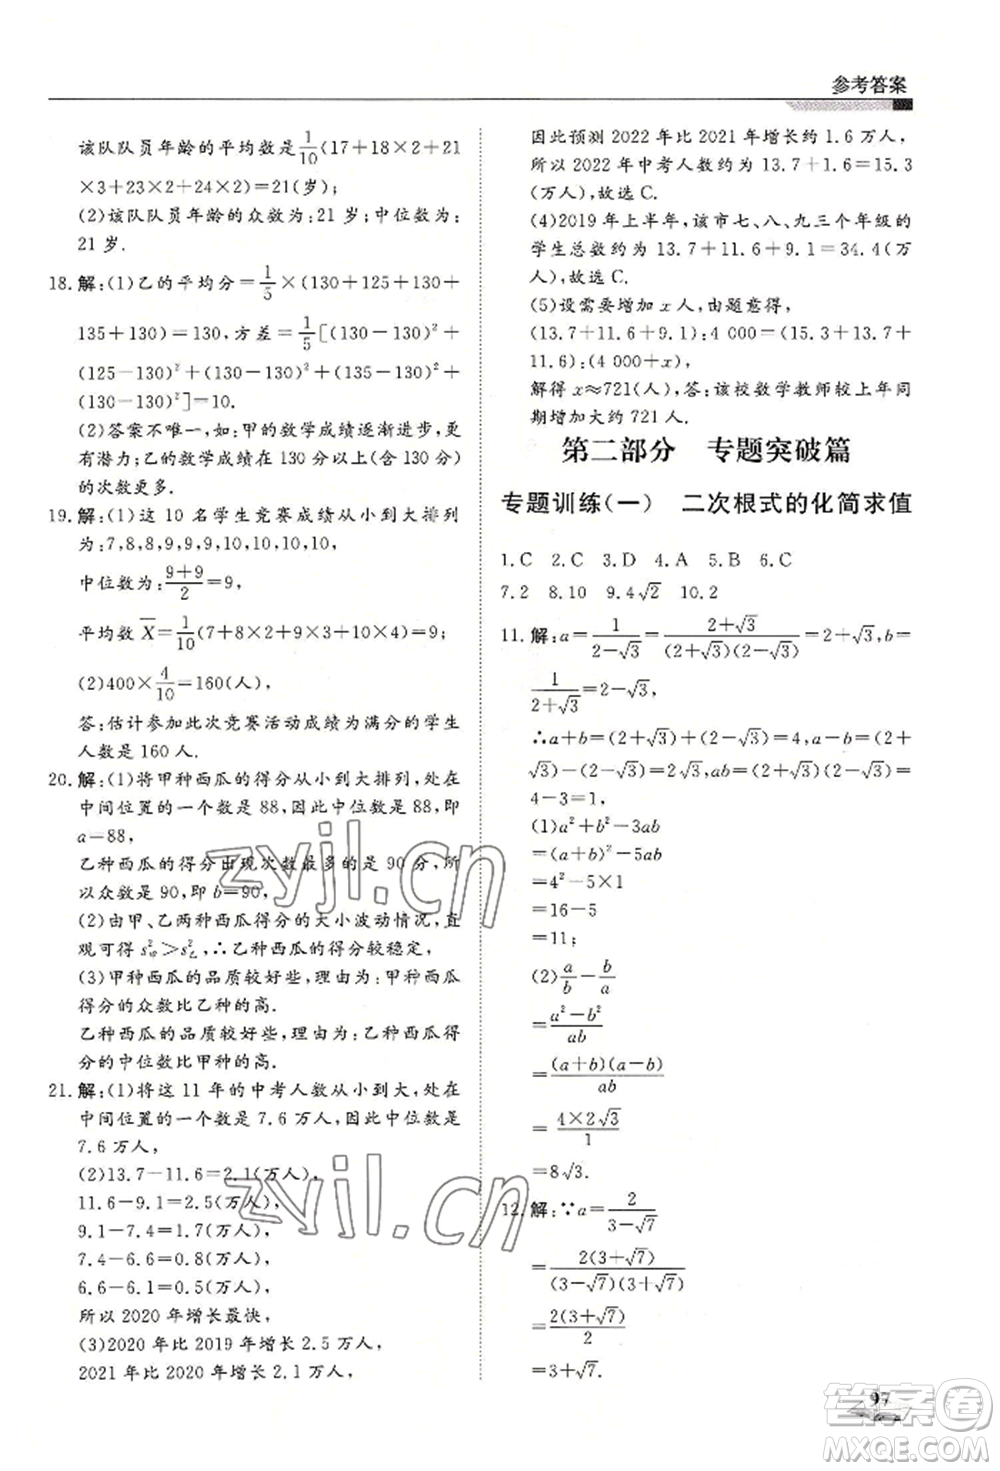 参考答案
该队队员年龄的平均数是1/10(17+18×2+21
×3+23×2+24×2)=21(岁);
(2)该队队员年龄的众数为:21岁;中位数为:
21岁.
18.解:(1)乙的平均分=1/5×(130+125+130+
135+130)=130,方差=1/5[(130-130)²+
(125-130)²+(130-130)²+(135-130)²+
(130-130)²]=10.
(2)答案不唯一,如:甲的数学成绩逐步进步,
有潜力;乙的数学成绩在130分以上(含130分)
的次数更多.
19.解:(1)这10名学生竞赛成绩从小到大排列
为:7,8,8,9,9,9,9,10,10,10,
中位数为:(9+9)/2=9,
平均数X̄=1/10(7+8×2+9×4+10×3)=9;
(2)400×4/10=160(人),
答:估计参加此次竞赛活动成绩为满分的学生
人数是160人.
20.解:(1)将甲种西瓜的得分从小到大排列,在
中间位置的一个数是88,因此中位数是88,即
a=88,
乙种西瓜的得分出现次数最多的是90分,所
以众数是90,即b=90,
(2)由甲、乙两种西瓜得分的大小波动情况,直
观可得s²甲>s²乙,∴乙种西瓜的得分较稳定,
(3)甲种西瓜的品质较好些,理由为:甲种西瓜
得分的众数比乙种的高.
乙种西瓜的品质较好些,理由为:乙种西瓜得
分的中位数比甲种的高.
21.解:(1)将这11年的中考人数从小到大,在
中间位置的一个数是7.6万人,因此中位数是
7.6万人,
(2)13.7-11.6=2.1(万人),
11.6-9.1=2.5(万人),
9.1-7.4=1.7(万人),
7.4-6.6=0.8(万人),
6.6-6.1=0.5(万人),
所以2020年增长最快,
(3)2020年比2019年增长2.5万人,
2021年比2020年增长2.1万人,
因此预测2022年比2021年增长约1.6万人,
所以2022年中考人数约为13.7+1.6=15.3
(万人),故选C.
(4)2019年上半年,该市七、八、九三个年级的
学生总数约为13.7+11.6+9.1=34.4(万
人),故选C.
(5)设需要增加x人,由题意得,
(13.7+11.6+9.1):4 000=(15.3+13.7+
11.6):(4 000+x),
解得x≈721(人),答:该校数学教师较上年同
期增加大约721人.
第二部分 专题突破篇
专题训练(一) 二次根式的化简求值
1.C 2.C 3.D 4.A 5.B 6.C
7.2 8.10 9.4√2 10.2
11.解:a=1/(2-√3)=(2+√3)/((2+√3)(2-√3))=2+√3,b=
1/(2+√3)=2-√3,
∴a+b=(2+√3)+(2-√3)=4,a-b=(2+
√3)-(2-√3)=2√3,ab=(2+√3)(2-√3)=
4-3=1,
(1)a²+b²-3ab
=(a+b)²-5ab
=4²-5×1
=16-5
=11;
(2)a/b-b/a
=(a²-b²)/ab
=(a+b)(a-b)/ab
=(4×2√3)/1
=8√3.
12.解:∵a=2/(3-√7)
=2(3+√7)/((3-√7)(3+√7))
=2(3+√7)/2
=3+√7.
97
zyjl.cn
zyjl.cn
答案圈
MXQE.COM